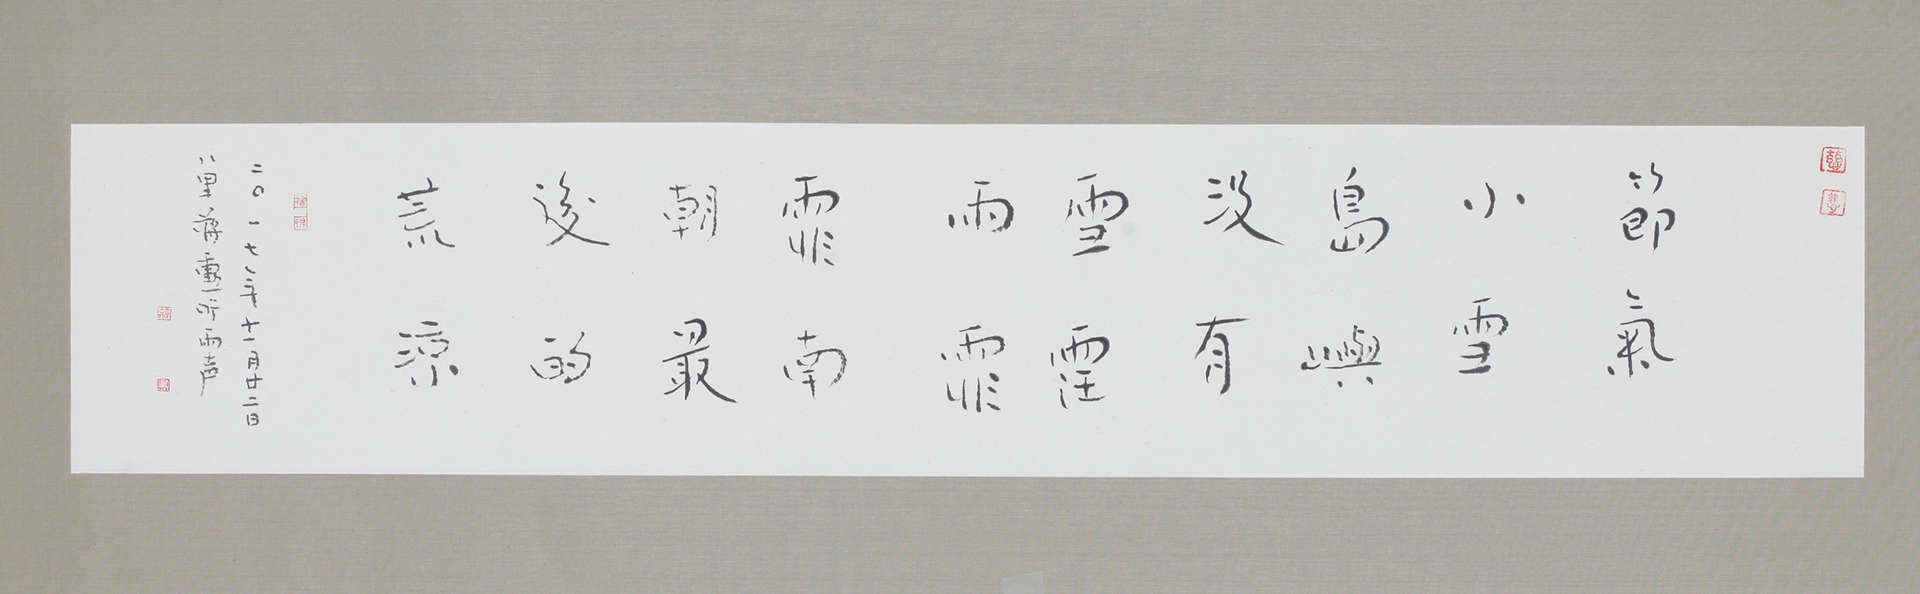 節氣
小雪
島嶼
没有
雪霪
雨霏
霏南
朝最
後的
荒涼
二〇一七年十一月廿二日
八里蔣勳听雨声